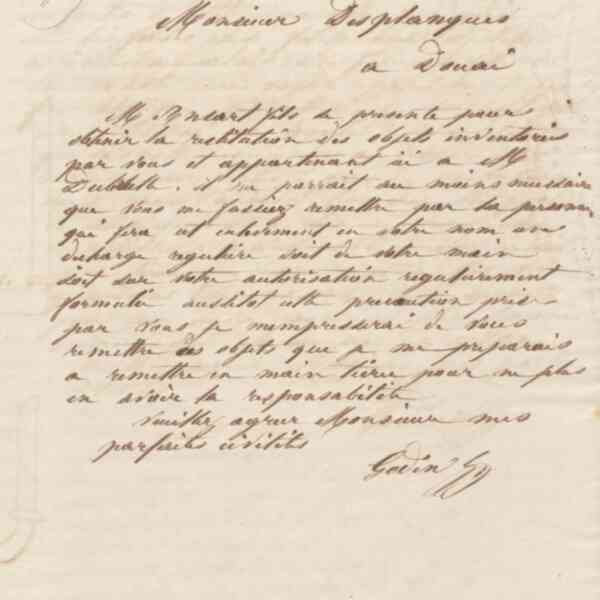 Monsieur Desplanques
a Douai
M fils se presente pour
obtenir la restitution des objets inventoriés
par vous et appartenant ici a M
il me parrait au moins nessaire
que vous me fassiez remettre par la personne
qui fera cet enlevement en votre nom une
decharge reguliere soit de votre main
soit sur votre autorisation regulierement
formulée aussitot cette precaution prise
par vous je m'empresserai de vous
remettre des objets que je me preparais
a remettre en main tierce pour ne plus
en avoir la responsabilité
Veuillez agreer Monsieur mes
parfaites civilités
Godin